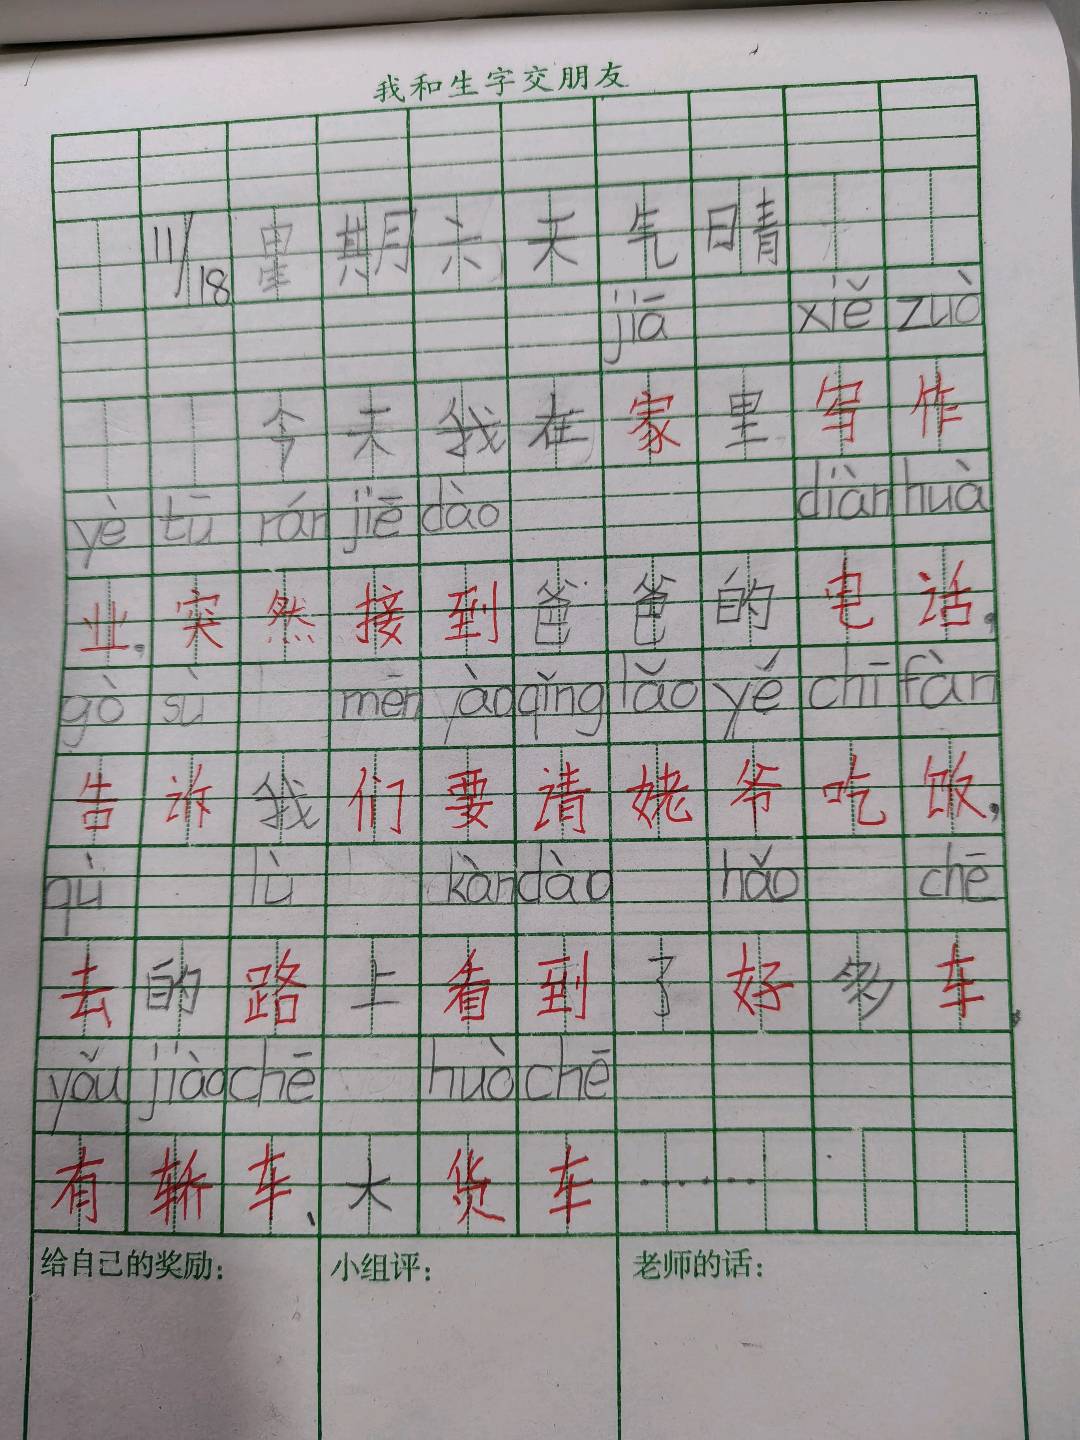 我和生字交朋友
11/18 星期六 天气晴
jiā xiě zuò
今天我在家里写作
yè tū rán jiē dào diàn huà
业。突然接到爸爸的电话,
gò sù mēn yào qǐng lǎo yé chī fàn
告诉我们要请姥爷吃饭,
qù lù kàn dào hǎo chē
去的路上看到了好多车,
yǒu jiào chē huò chē
有轿车、大货车……
给自己的奖励: 小组评: 老师的话: